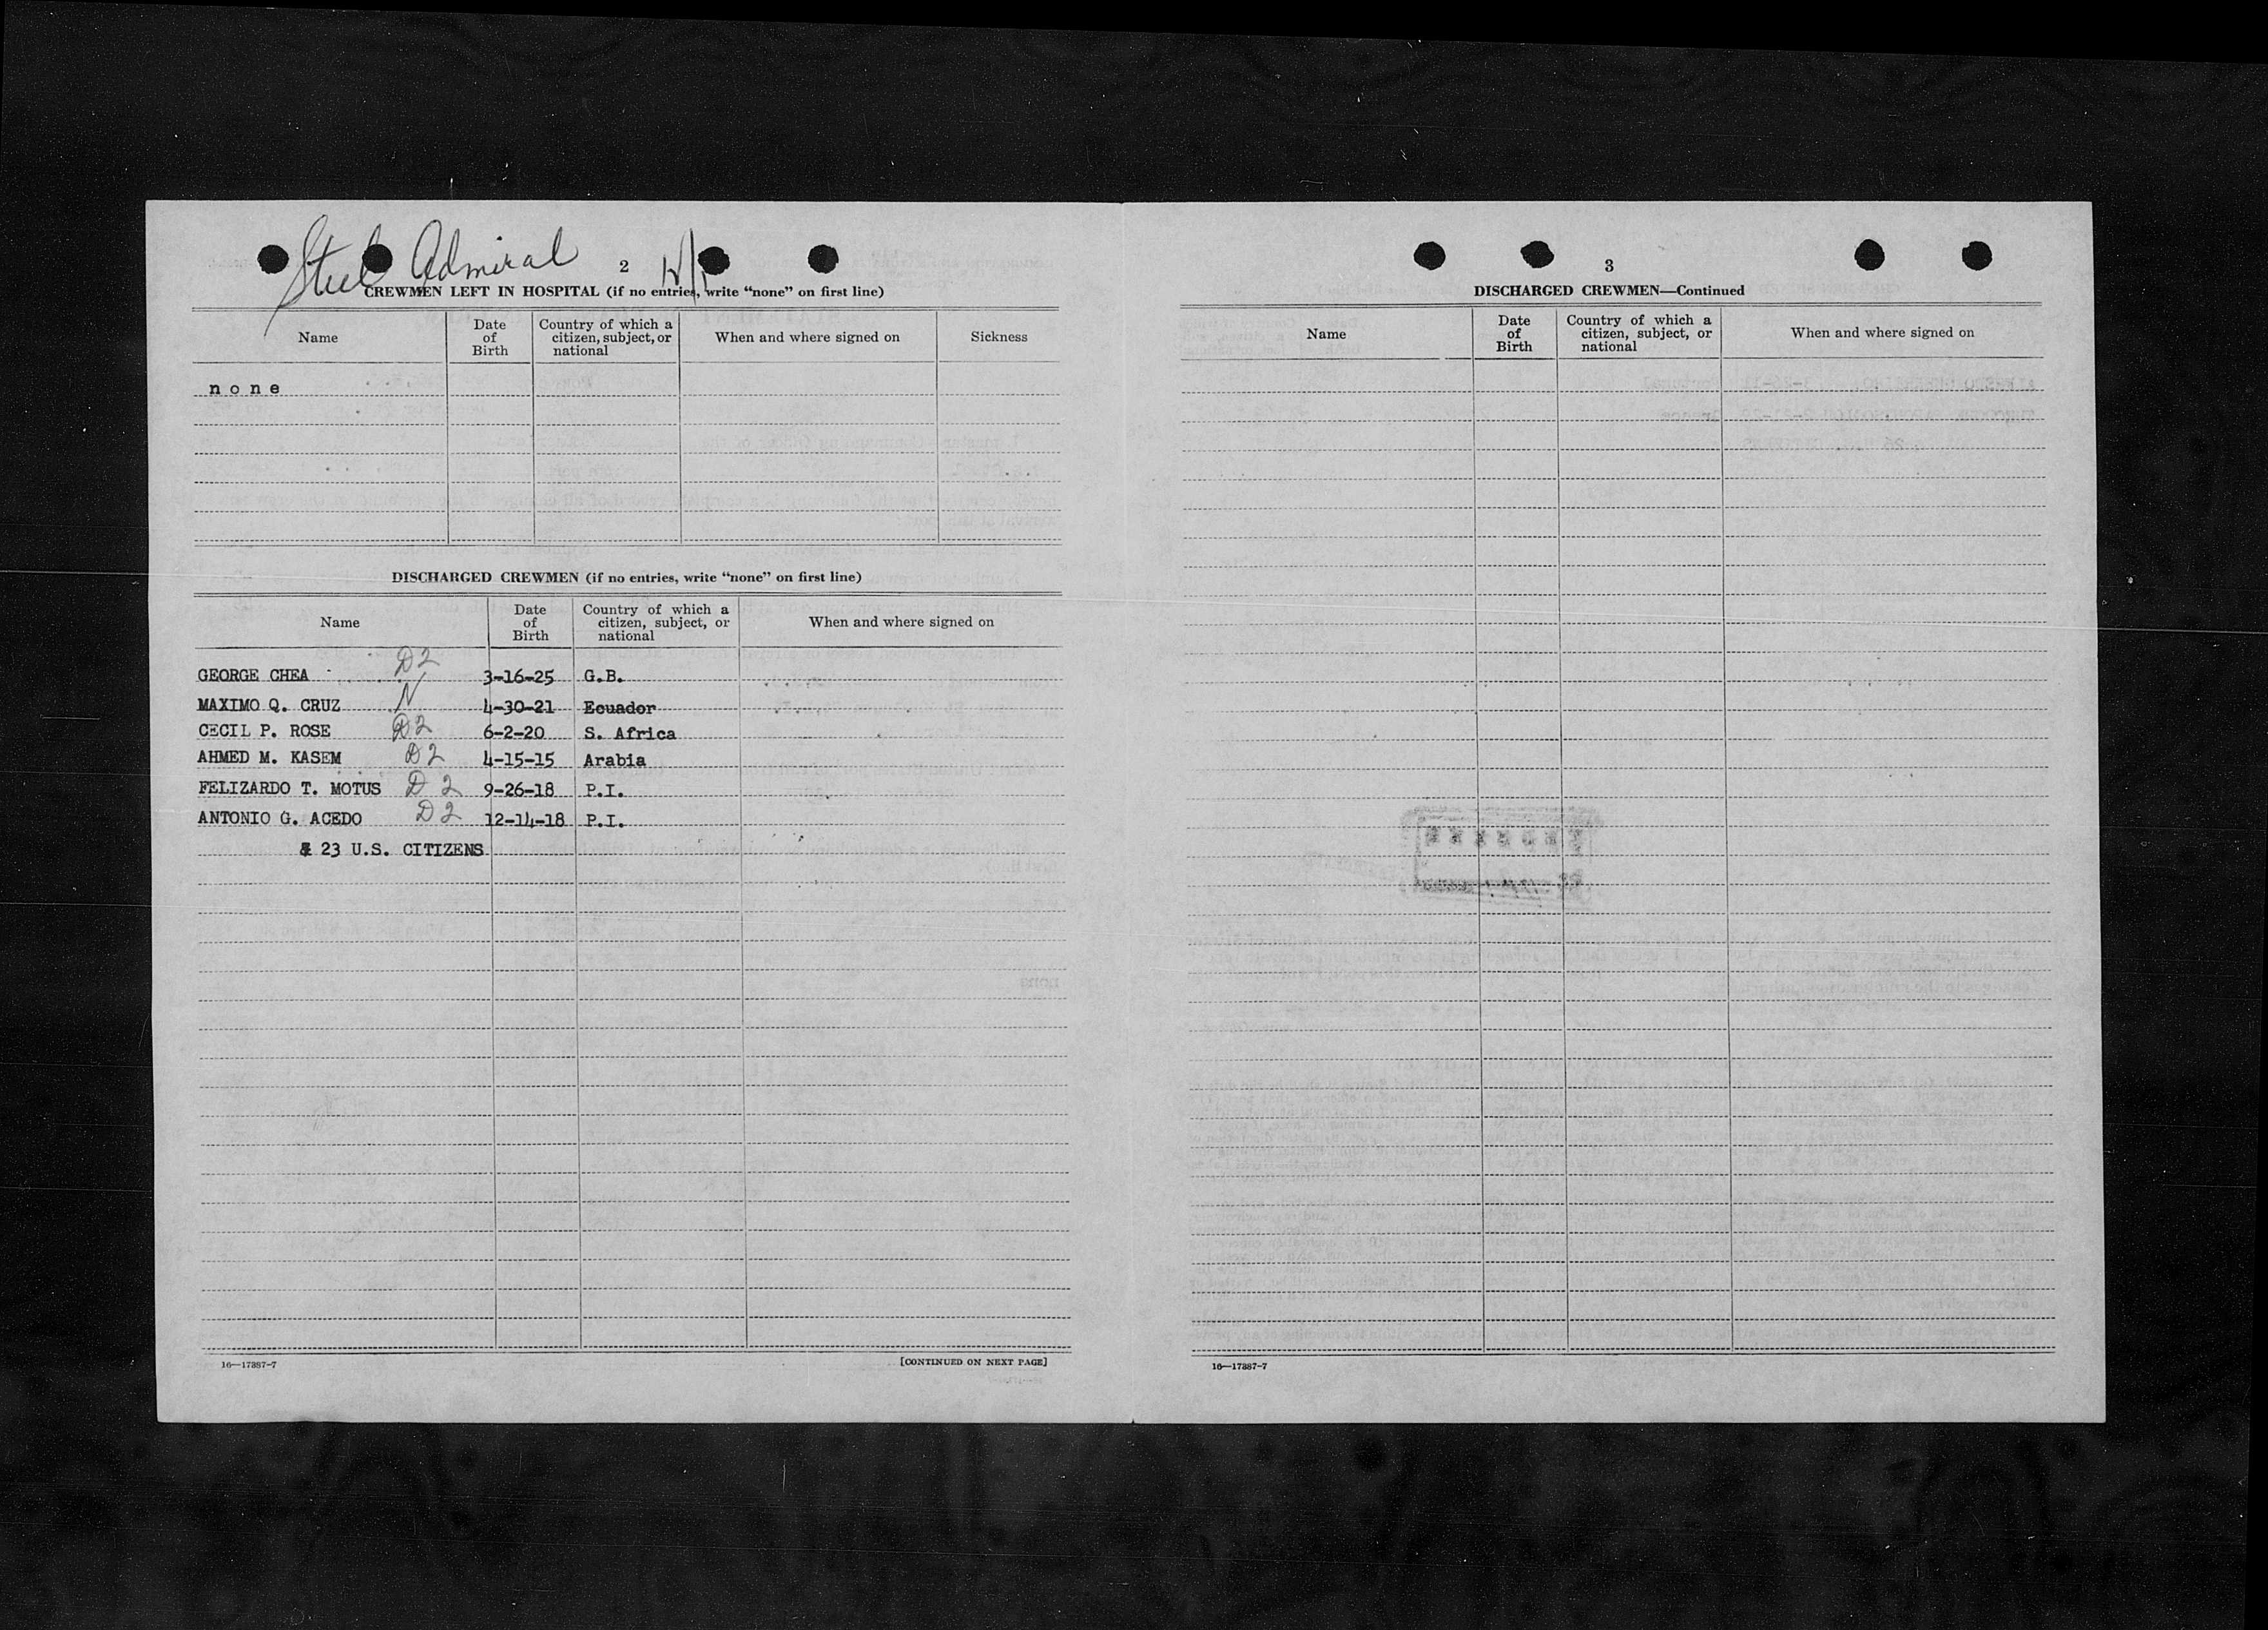 Steel Admiral
2
CREWMEN LEFT IN HOSPITAL (if no entries, write “none” on first line)
Name
Date of Birth
Country of which a citizen, subject, or national
When and where signed on
Sickness
none
DISCHARGED CREWMEN (if no entries, write “none” on first line)
Name
Date of Birth
Country of which a citizen, subject, or national
When and where signed on
GEORGE CHEA D2 3-16-25 G.B.
MAXIMO Q. CRUZ N 4-30-21 Ecuador
CECIL P. ROSE D2 6-2-20 S. Africa
AHMED M. KASEM D2 4-15-15 Arabia
FELIZARDO T. MOTUS D2 9-26-18 P.I.
ANTONIO G. ACEDO D2 12-14-18 P.I.
& 23 U.S. CITIZENS
16—17387-7
[CONTINUED ON NEXT PAGE]
3
DISCHARGED CREWMEN—Continued
Name
Date of Birth
Country of which a citizen, subject, or national
When and where signed on
16—17387-7